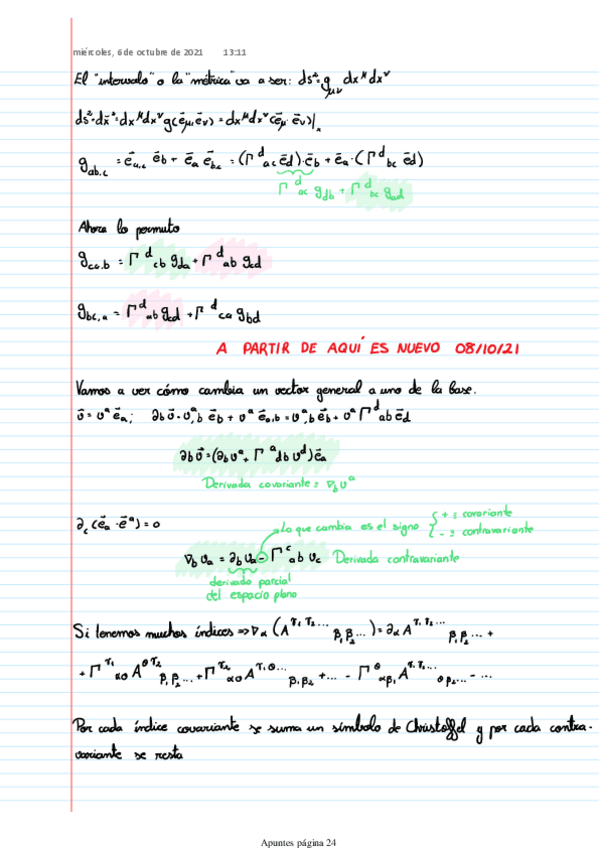 miércoles, 6 de octubre de 2021 13:11
El "intervalo" o la "métrica" va a ser: ds² = g_μν dx^μ dx^ν
ds² = dx⃗² = dx^μ dx^ν g(e⃗_μ, e⃗_ν) = dx^μ dx^ν (e⃗_μ · e⃗_ν)|ₓ
g_ab,c = e⃗_a,c e⃗_b + e⃗_a e⃗_b,c = (Γ^d_ac e⃗_d) · e⃗_b + e⃗_a · (Γ^d_bc e⃗_d)
Γ^d_ac g_db + Γ^d_bc g_ad
Ahora lo permuto
g_ca,b = Γ^d_cb g_da + Γ^d_ab g_cd
g_bc,a = Γ^d_ab g_cd + Γ^d_ca g_bd
A PARTIR DE AQUÍ ES NUEVO 08/10/21
Vamos a ver cómo cambia un vector general a uno de la base.
v⃗ = v^a e⃗_a; ∂_b v⃗ = v^a_,b e⃗_b + v^a e⃗_a,b = v^a_,b e⃗_b + v^a Γ^d_ab e⃗_d
∂_b v⃗ = (∂_b v^a + Γ^a_db v^d) e⃗_a
Derivada covariante = ∇_b v^a
∂_c (e⃗_a · e⃗^a) = 0
Lo que cambia es el signo { + = covariante
- = contravariante
∇_b v_a = ∂_b v_a - Γ^c_ab v_c Derivada contravariante
derivada parcial
del espacio plano
Si tenemos muchos índices => ∇_α (A^γ₁ γ₂ ... _β₁ β₂ ...) = ∂_α A^γ₁ γ₂ ... _β₁ β₂ ... +
+ Γ^γ₁_αθ A^θ γ₂ ... _β₁ β₂ ... + Γ^γ₂_αθ A^γ₁ θ ... _β₁ β₂ + ... - Γ^θ_αβ₁ A^γ₁ γ₂ ... _θ β₂ ... - ...
Por cada índice covariante se suma un símbolo de Christoffel y por cada contra-
variante se resta
Apuntes página 24